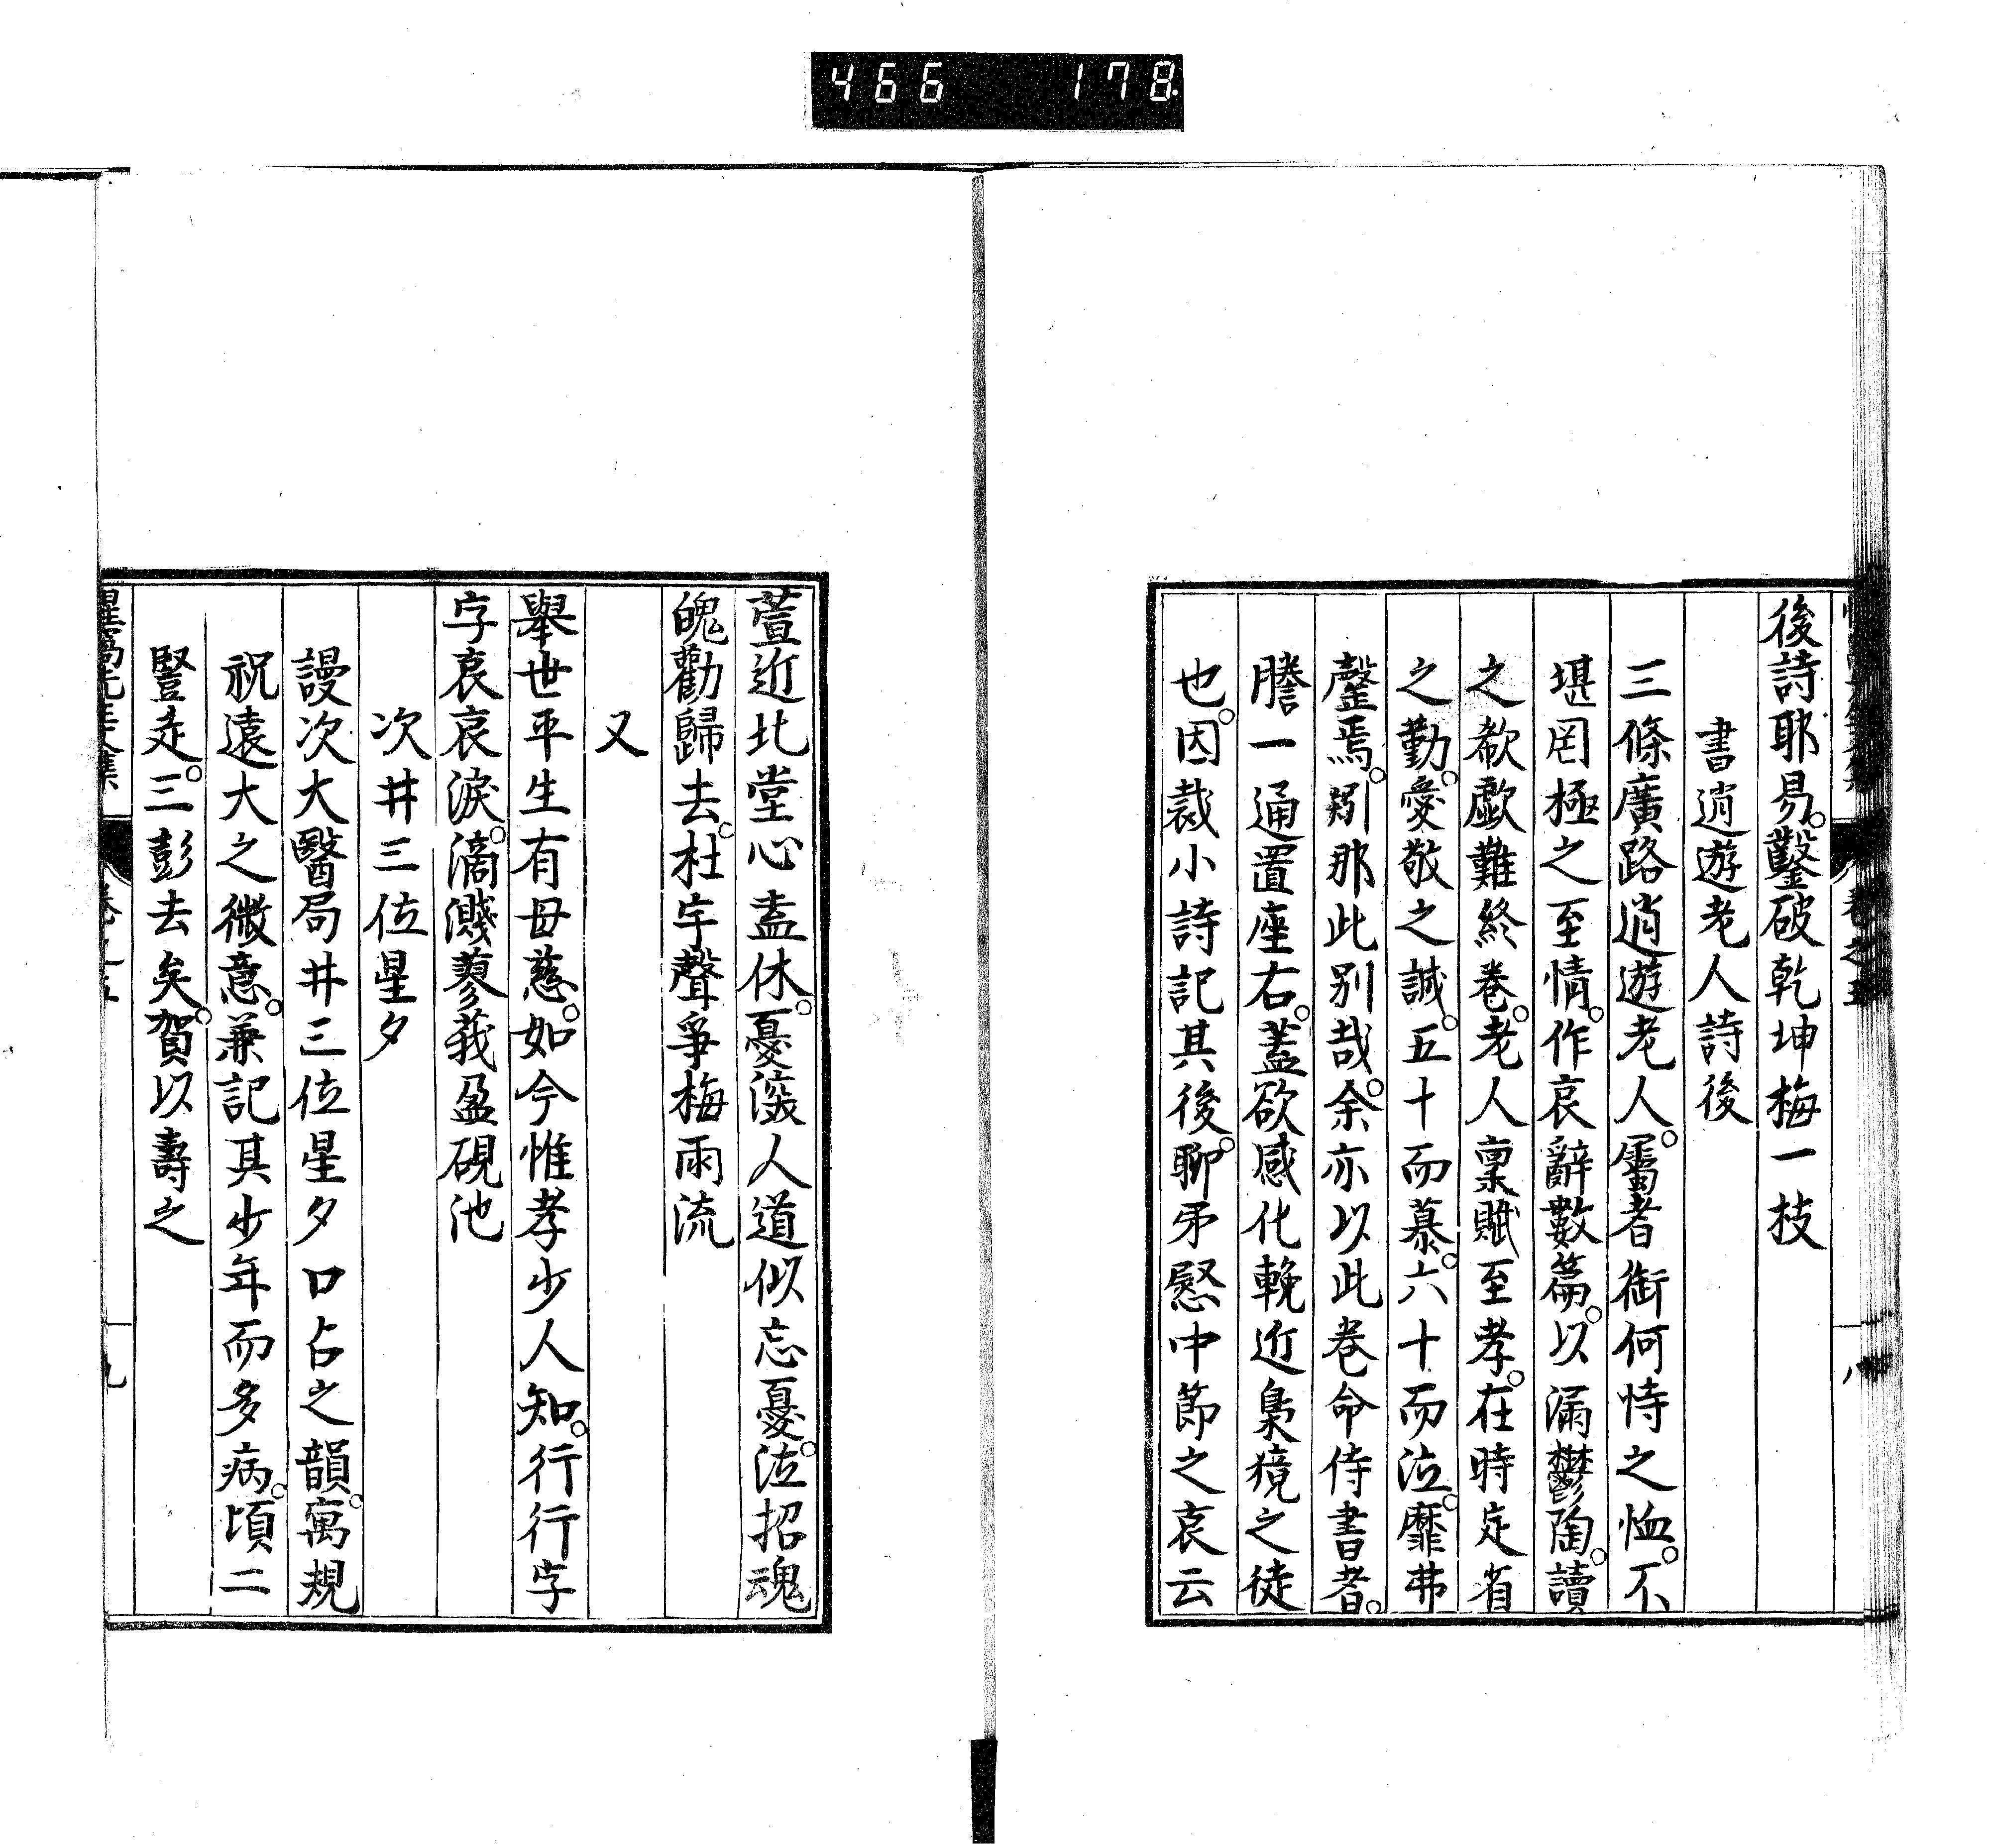 466 178
後詩耶易。鑿破乾坤梅一枝
書逍遊老人詩後
三條廣路逍遊老人。屬者銜何恃之恤。不
堪罔極之至情。作哀辭數篇。以漏鬱陶。讀
之欷歔難終卷。老人稟賦至孝。在時定省
之勤。愛敬之誠。五十而慕。六十而泣。靡弗
罄焉。矧那此別哉。余亦以此卷命侍書者。
謄一通置座右。蓋欲感化輓近梟獍之徒
也。因裁小詩記其後。聊弔慰中節之哀云
萱近北堂心盍休。憂深人道似忘憂。泣招魂
魄勸歸去。杜宇聲爭梅雨流
又
擧世平生有母慈。如今惟孝少人知。行行字
字哀哀淚。滴濺蓼莪盈硯池
次井三位星夕
謾次大醫局井三位星夕口占之韻。寓規
祝遠大之微意。兼記其少年而多病。頃二
豎走。三彭去矣。賀以壽之
惺窩先生文集 卷之五 九